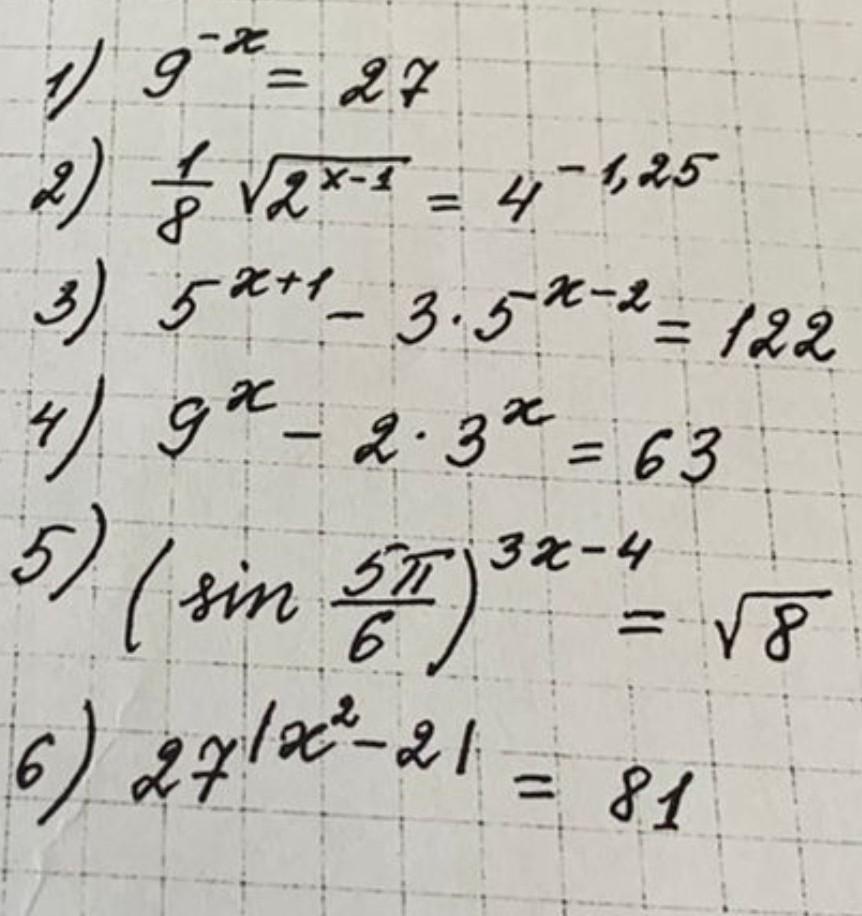 1) 9^{-x} = 27
2) \frac{1}{8} \sqrt{2^{x-1}} = 4^{-1,25}
3) 5^{x+1} - 3 \cdot 5^{x-2} = 122
4) 9^{x} - 2 \cdot 3^{x} = 63
5) (sin \frac{5π}{6})^{3x-4} = \sqrt{8}
6) 27^{|x^{2}-2|} = 81